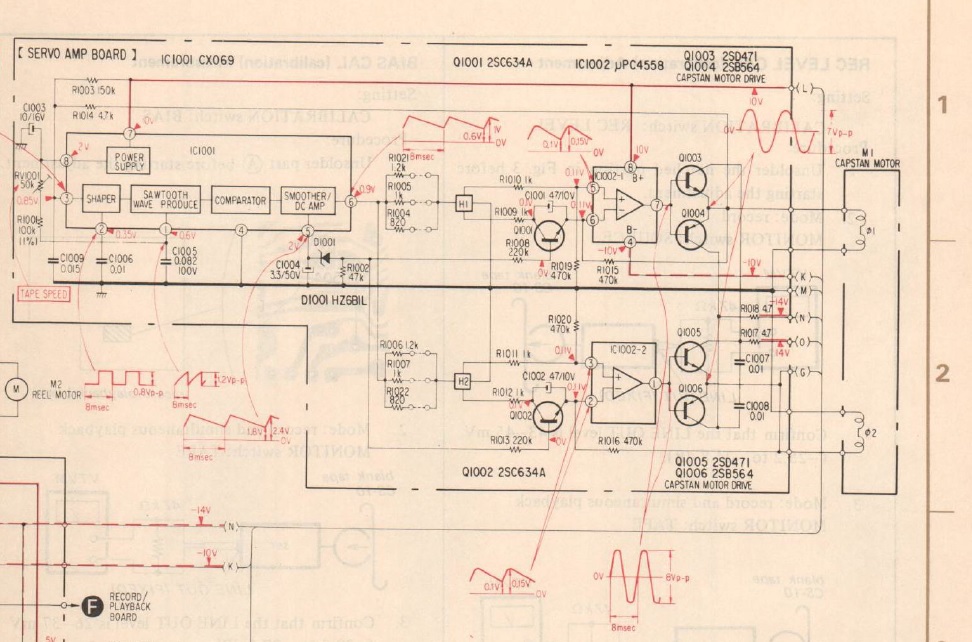 [ SERVO AMP BOARD ]
IC1001 CX069
Q1001 2SC634A
IC1002 μPC4558
Q1003 2SD471
Q1004 2SB564
CAPSTAN MOTOR DRIVE
R1003 150k
R1014 4.7k
C1003
10/16V
RV1001
50k
0.85V
R1001
100k
(1%)
2V
8
7
3
IC1001
POWER
SUPPLY
SHAPER
SAWTOOTH
WAVE PRODUCE
COMPARATOR
SMOOTHER/
DC AMP
6
0.9V
2
0.35V
1
0.6V
4
5
2V
C1009
0.015
C1006
0.01
C1005
0.082
100V
C1004
3.3/50V
D1001
R1002
47k
D1001 HZ6BIL
TAPE SPEED
8msec
0.6V
1V
0V
R1021
1.2k
R1005
1k
R1004
820
H1
0.1V
0.15V
0V
R1010 1k
R1009 1k
C1001 47/10V
0.1V
0.11V
0.11V
Q1001
R1008
220k
0V
R1019
470k
R1015
470k
10V
8
IC1002-1
B+
5
6
7
B-
4
-10V
Q1003
Q1004
10V
7Vp-p
(L)
M1
CAPSTAN MOTOR
ø1
-10V
(K)
(M)
-14V
R1018 4.7
(N)
R1017 4.7
(O)
14V
(G)
R1020
470k
R1006 1.2k
R1007
1k
R1022
820
H2
R1011 1k
0.11V
C1002 47/10V
R1012 1k
0.1V
0.11V
Q1002
0V
R1013 220k
R1016 470k
IC1002-2
3
2
1
Q1005
Q1006
C1007
0.01
C1008
0.01
ø2
M
M2
REEL MOTOR
0.8Vp-p
8msec
1.2Vp-p
8msec
1.8V
2.4V
0V
8msec
Q1002 2SC634A
Q1005 2SD471
Q1006 2SB564
CAPSTAN MOTOR DRIVE
-14V
(N)
-10V
(K)
F
RECORD/
PLAYBACK
BOARD
5V
0.1V
0.15V
0V
0V
8Vp-p
8msec
1
2